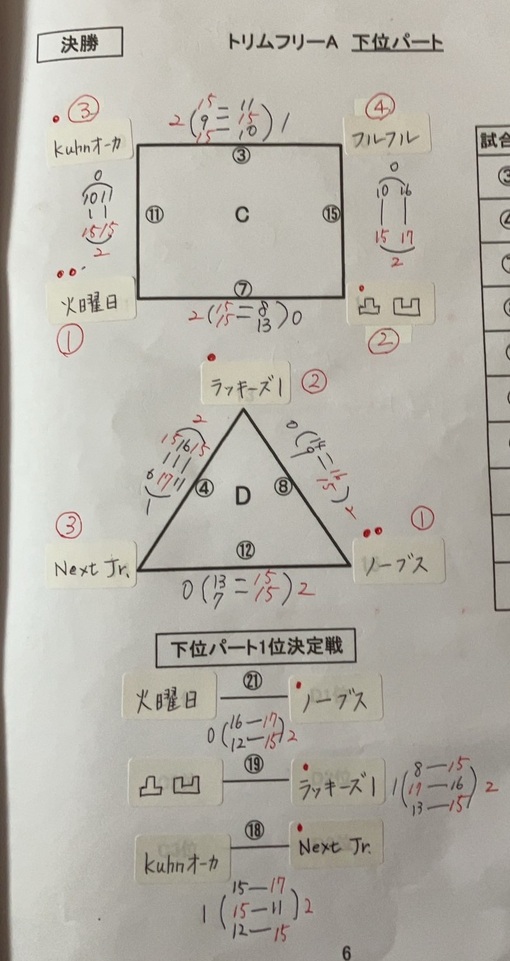 決勝
トリムフリーA 下位パート
③ ④
Kuhnオーカ フルフル
2 (15 = 11 9 = 15 15 = 10) 1
③
試合
0
10 11
15 15
2
⑪ C ⑮
0
10 16
15 17
2
⑦
火曜日 凸凹
① ②
2 (15 = 8 15 = 13) 0
ラッキーズ1 ②
2
15 16 15
6 17 11
1
④ D ⑧
0
15
2
③ ①
Next Jr. ノーブス
⑫
0 (13 = 15 7 = 15) 2
下位パート1位決定戦
火曜日 ㉑ ノーブス
0 (16 — 17 12 — 15) 2
凸凹 ⑲ ラッキーズ1
1 (8 — 15 17 — 16 13 — 15) 2
Kuhnオーカ ⑱ Next Jr.
1 (15 — 17 15 — 11 12 — 15) 2
6